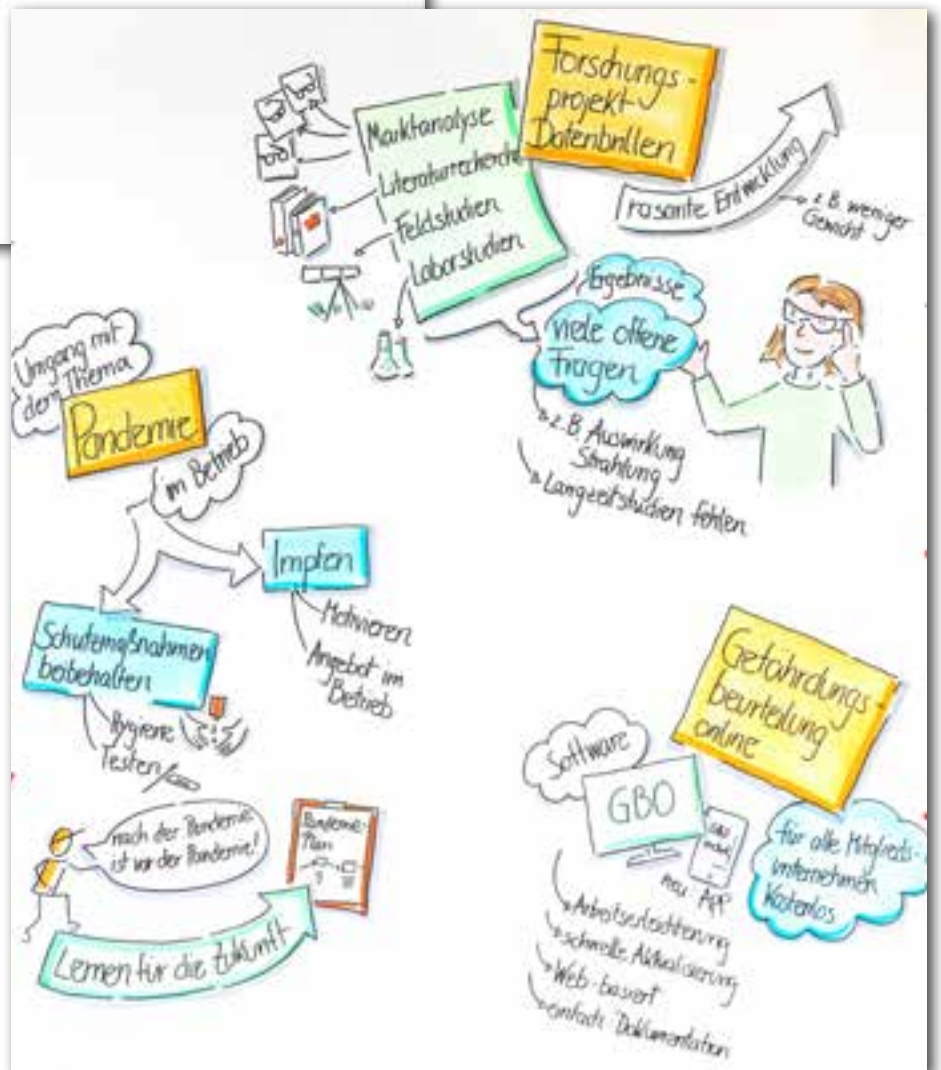 Forschungs-
projekt
Datenbrillen
Marktanalyse
Literaturrecherche
Feldstudien
Laborstudien
rasante Entwicklung
z.B. weniger
Gewicht
Ergebnisse
viele offene
Fragen
z.B. Auswirkung
Strahlung
Langzeitstudien fehlen
Umgang mit
dem Thema
Pandemie
im Betrieb
Impfen
Motivieren
Angebot im
Betrieb
Schutzmaßnahmen
beibehalten
Hygiene
Testen
nach der Pandemie
ist vor der Pandemie!
Pandemie-
Plan
Lernen für die Zukunft
Gefährdungs-
beurteilung
online
Software
GBO
GBO
mobil
neu App
für alle Mitglieds-
unternehmen
Kostenlos
Arbeitserleichterung
schnelle Aktualisierung
Web-basiert
einfache Dokumentation